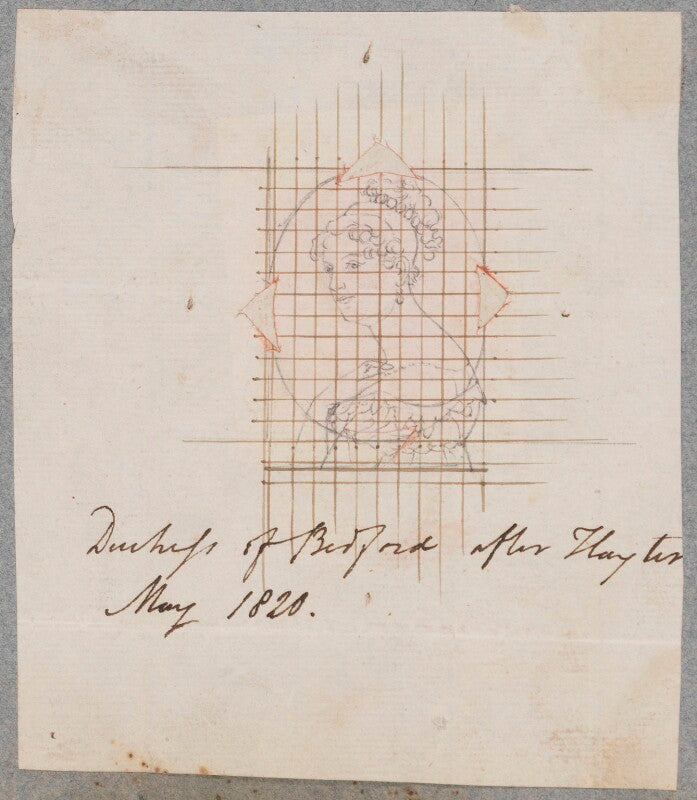 Duchess of Bedford after Hayter
May 1820.